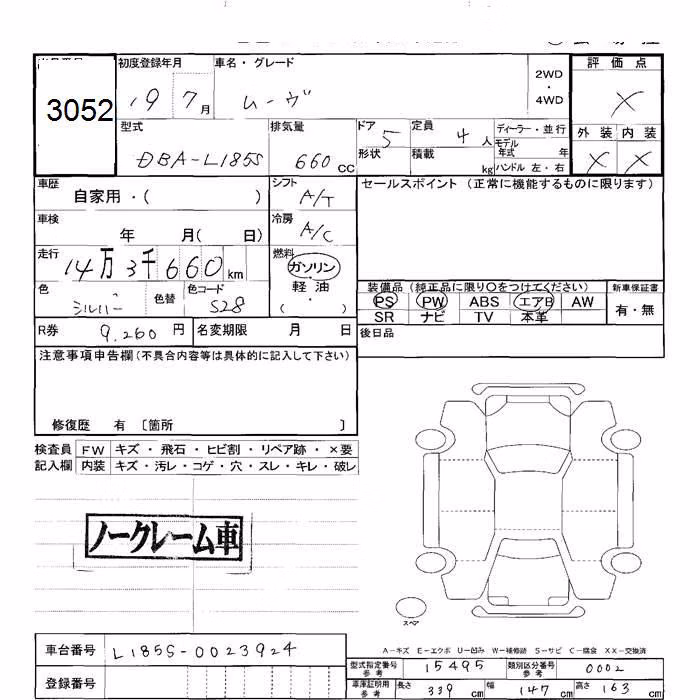 初度登録年月 車名・グレード 2WD・4WD 評価点
3052 19 7月 ムーヴ X
型式 排気量 ドア 5 定員 4人 ディーラー・並行 外装 内装
DBA-L185S 660CC 形状 積載 kg モデル年式 年 ハンドル 左・右 X X
車歴 自家用・( ) シフト A/T セールスポイント (正常に機能するものに限ります)
車検 年 月( 日) 冷房 A/C
走行 14万3千660km 燃料 ガソリン 軽油・( )
色 シルバー 色替 色コード S28
装備品 (純正品に限り○をつけてください) 新車保証書
PS PW ABS エアB AW 有・無
SR ナビ TV 本革
R券 9,260円 名変期限 月 日 後日品
注意事項申告欄(不具合内容等は具体的に記入して下さい)
修復歴 有 〔箇所 〕
検査員 FW キズ・飛石・ヒビ割・リペア跡・×要
記入欄 内装 キズ・汚レ・コゲ・穴・スレ・キレ・破レ
ノークレーム車
スペア
A-キズ E-エクボ U-凹み W-補修跡 S-サビ C-腐食 XX-交換済
車台番号 L185S-0023924 型式指定番号 参考 15495 類別区分番号 参考 0002
登録番号 車庫証明用 参考 長さ 339cm 幅 147cm 高さ 163cm